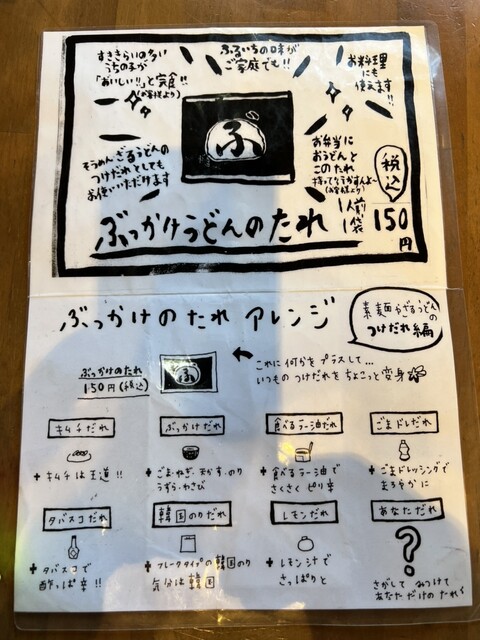 すききらいの多い
うちの子が
「おいしい!!」と完食!!
(お客様より)
ふるいちの味が
ご家庭でも!!
お料理
にも
使えます
!!
そうめん、ざるうどんの
つけだれとしても
お使いいただけます
ふ
お弁当に
おうどんと
このたれ
持ってこうかすんよ〜
(お客様より)
1人前
1袋
税込
150
円
ぶっかけうどんのたれ
ぶっかけのたれ アレンジ
素麺やざるうどんの
つけだれ編
ぶっかけのたれ
150円(税込)
ふ
これに何かをプラスして...
いつものつけだれをちょこっと変身
キムチだれ
+ キムチは王道!!
ぶっかけだれ
+ ごま・ねぎ・天かす・のり
うずら・わさび
食べるラー油だれ
+ 食べるラー油で
さくさくピリ辛
ごまドレだれ
+ ごまドレッシングで
まろやかに
タバスコだれ
+ タバスコで
酢っぱ辛!!
韓国のりだれ
+ フレークタイプの韓国のり
気分は韓国
レモンだれ
+ レモン汁で
さっぱりと
あなただれ
?
さがして みつけて
あなただけのたれ